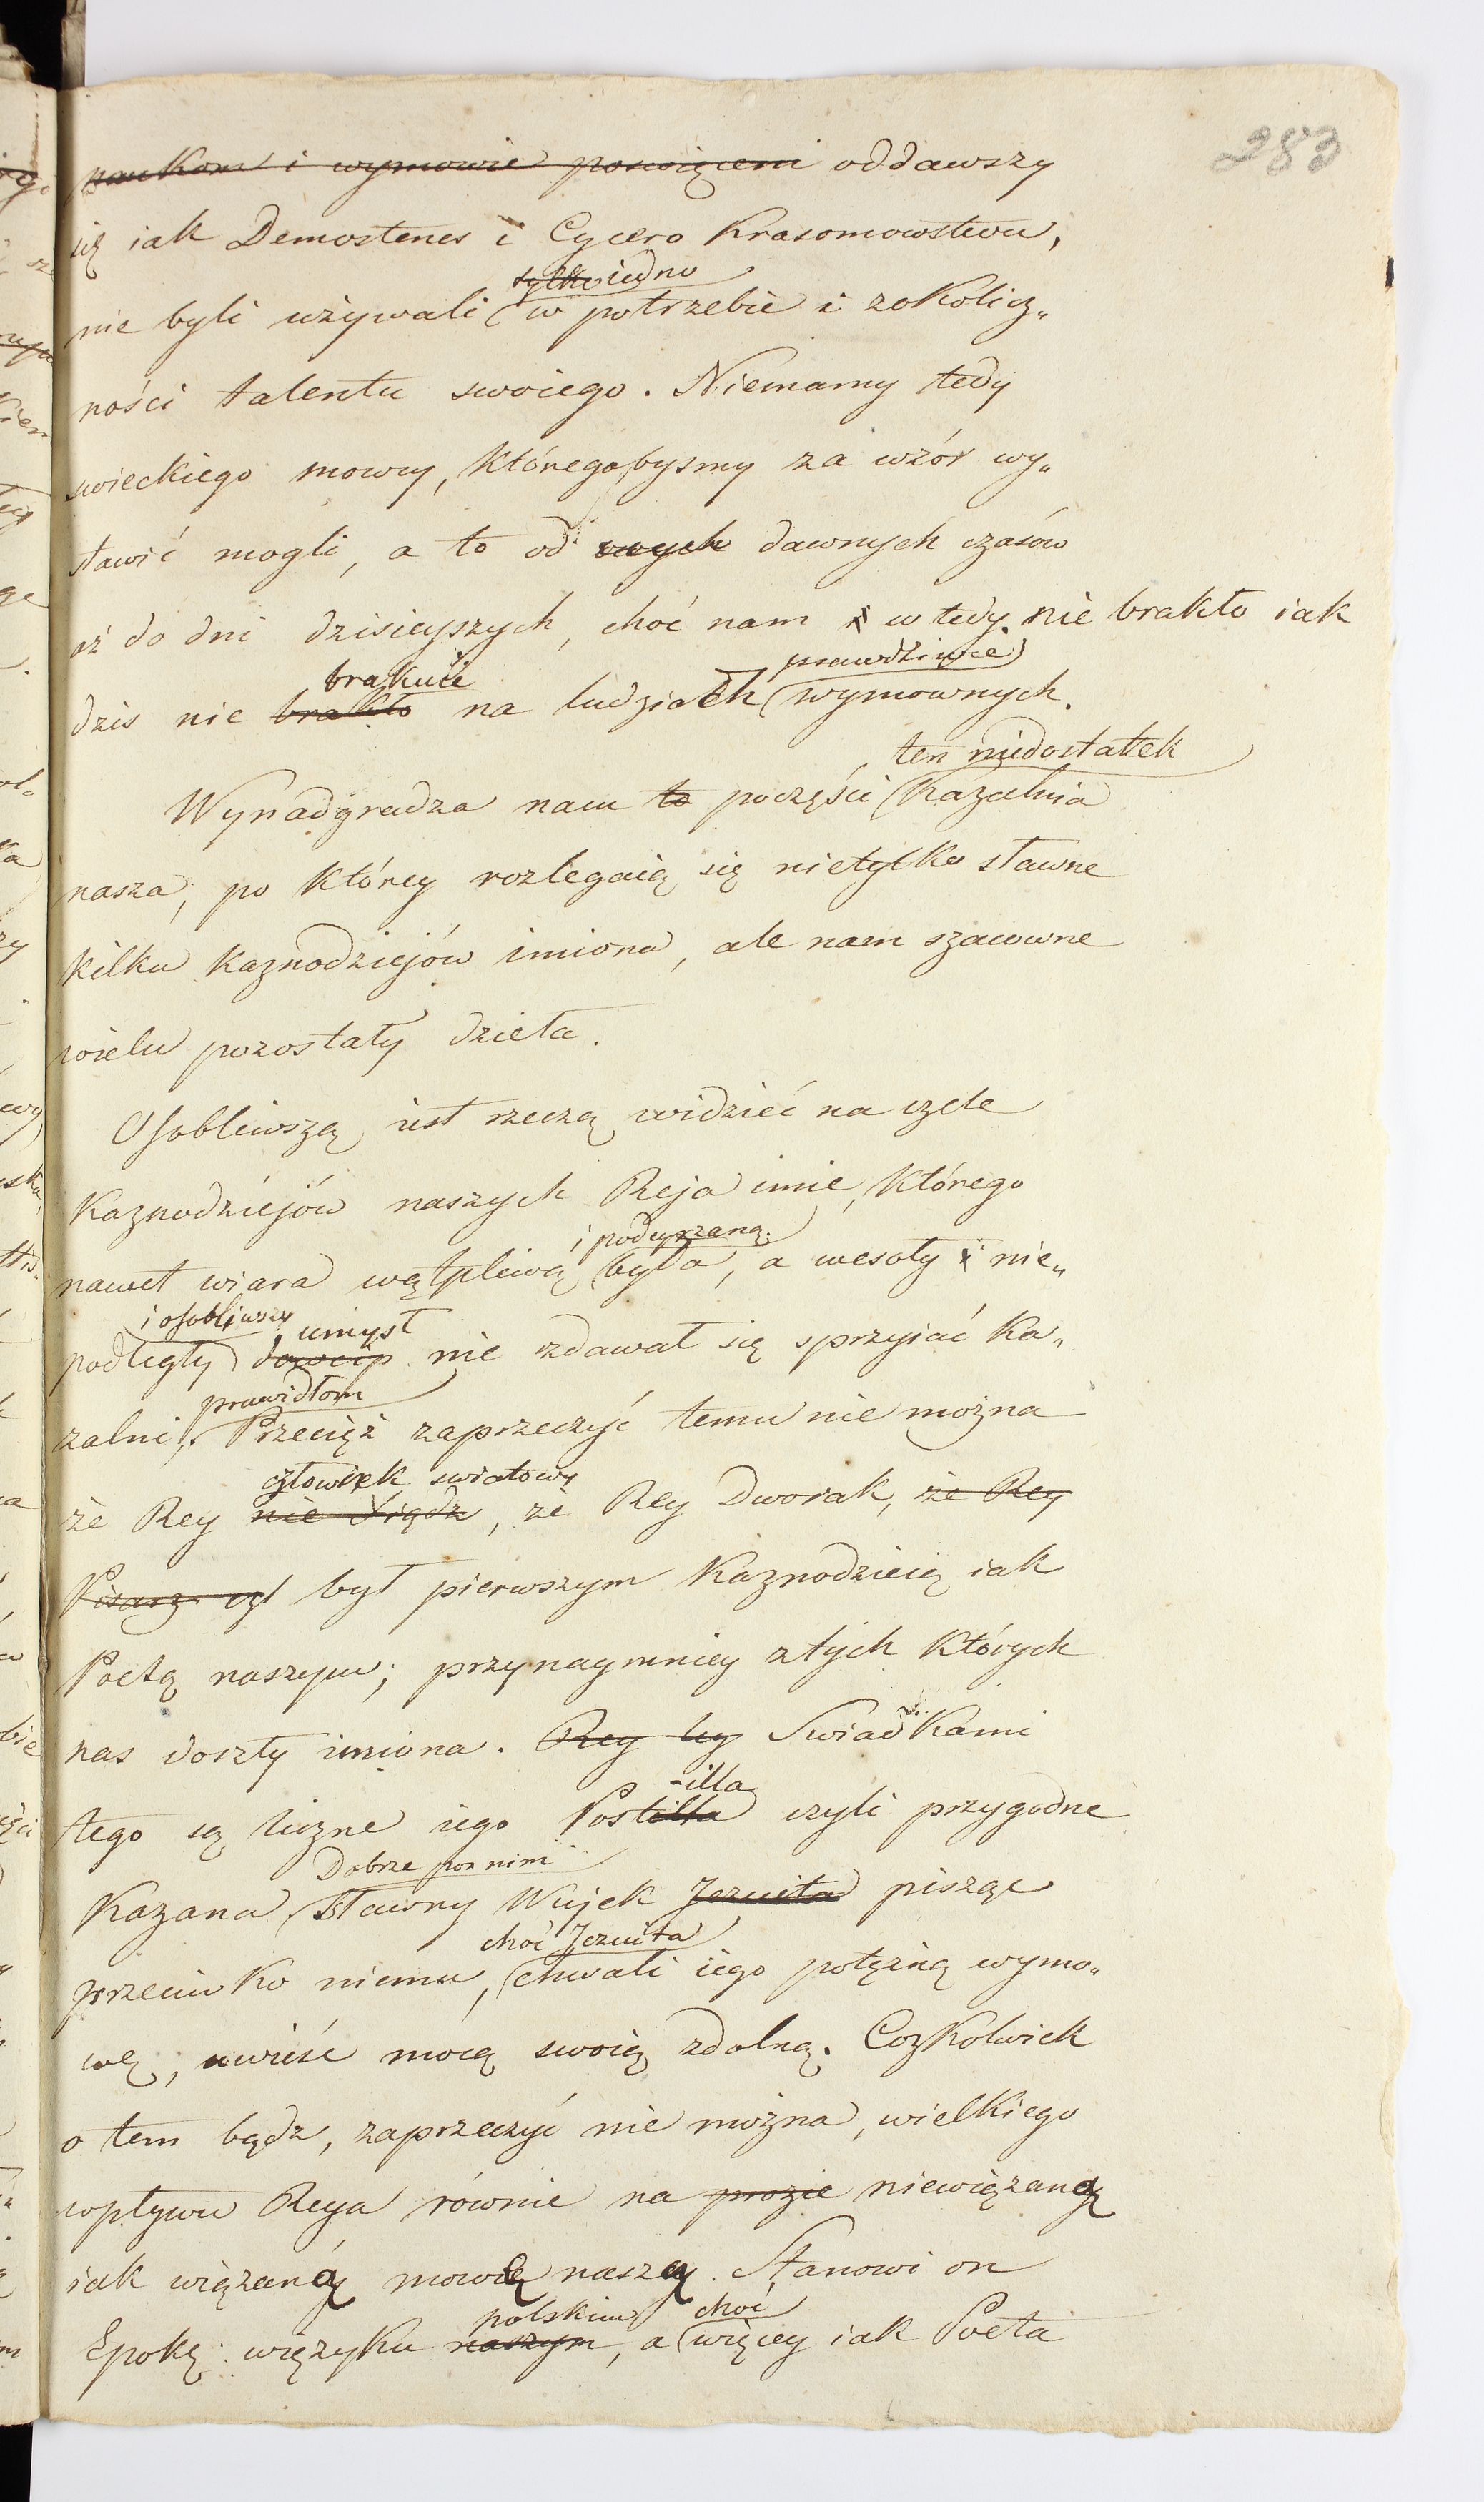 283
naukom i wymowie poswięceni oddawszy
się iak Demostenes i Cycero Krasomowstwu,
tylko iedno
nie byli używali w potrzebie i zokolicz„
ności talentu swoiego. Niemamy tedy
swieckiego mowcy, któregobysmy za wzór wy„
stawić mogli, a to od owych dawnych czasów
aż do dni dzisieyszych, choć nam i wtedy nie brakło iak
brakuie prawdziwie
dzis nie brakło na ludziach wymownych.
ten niedostatek
Wynadgradza nam to poczęści Kazalnia
nasza, po któréy rozlegaią się nietylko sławne
kilku Kaznodziejów imiona, ale nam szacowne
wielu pozostały dzieła.
Osobliwszą iest rzeczą widzieć na czele
Kaznodziejów naszych Reja imie, którego
i podeyrzaną
nawet wiara wątpliwą była, a wesoły i nie„
i osobliwszy umysł
podległy dowcip nie zdawał się sprzyiać Ka„
prawidłom
zalni. Przecież zaprzeczyć temu nie można
człowiek swiatowy
że Rey nie Xiądz, że Rey Dworak, że Rey
Pisarz był pierwszym Kaznodzieią iak
Poetą naszym; przynaymniey z tych których
nas doszły imiona. Rey Swiadkami
-illa
tego są liczne iego Postilla czyli przygodne
Dobrze przed nim
Kazana Sławny Wujek Jezuita pisząc
choć Jezuita
przeciwko niemu, chwali iego potężną wymo„
wę, uwieść mocą swoią zdolną. Cozkolwiek
o tem bądz, zaprzeczyć nie można, wielkiego
wpływu Reya równie na prozie niewiązaną
iak wiązaną mowę naszą. Stanowi on
polskim choć
Epokę więzyku naszym, a więcey iak Poeta